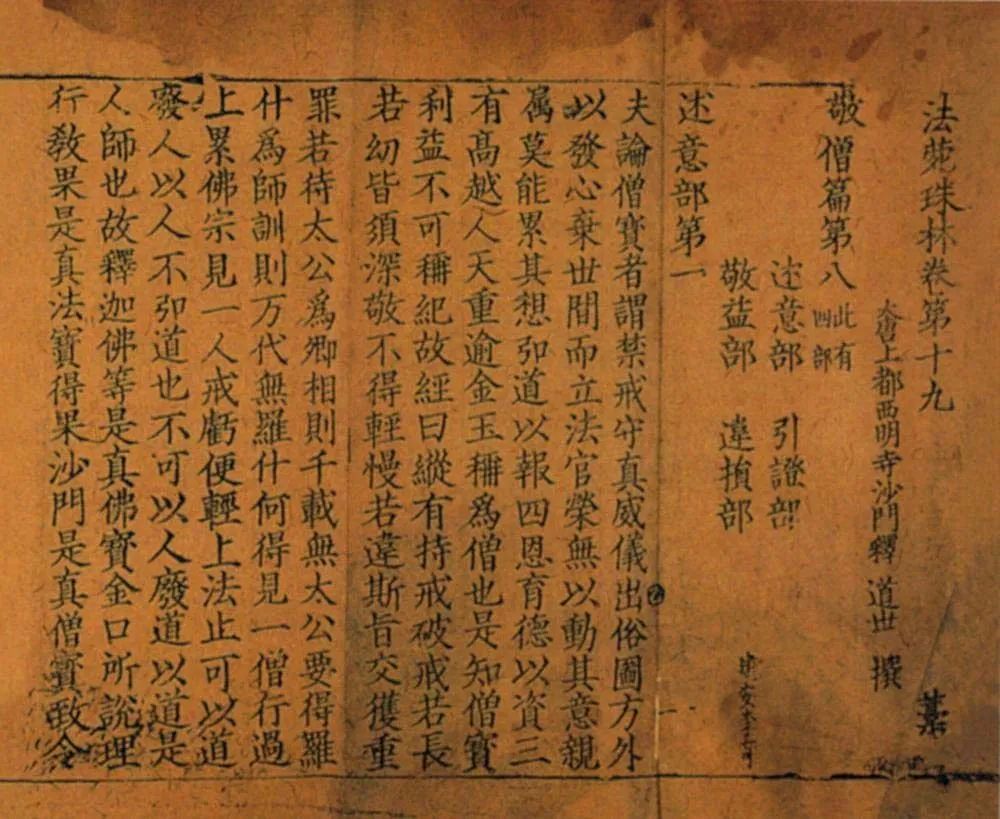 法苑珠林卷第十九
大唐上都西明寺沙門釋 道世 撰
敬僧篇第八 此有四部
述意部 引證部
敬益部 違損部
述意部第一
夫論僧寶者謂禁戒守真威儀出俗圖方外
以發心棄世間而立法官榮無以動其意親
屬莫能累其想弘道以報四恩育德以資三
有高越人天重逾金玉稱爲僧也是知僧寶
利益不可稱紀故經曰縱有持戒破戒若長
若幼皆須深敬不得輕慢若違斯旨交獲重
罪若待太公爲卿相則千載無太公要得羅
什爲師訓則万代無羅什何得見一僧行過
上累佛宗見一人戒虧便輕上法止可以道
廢人以人不弘道也不可以人廢道以道是
人師也故釋迦佛等是真佛寶金口所說理
行教果是真法寶得果沙門是真僧寶致令